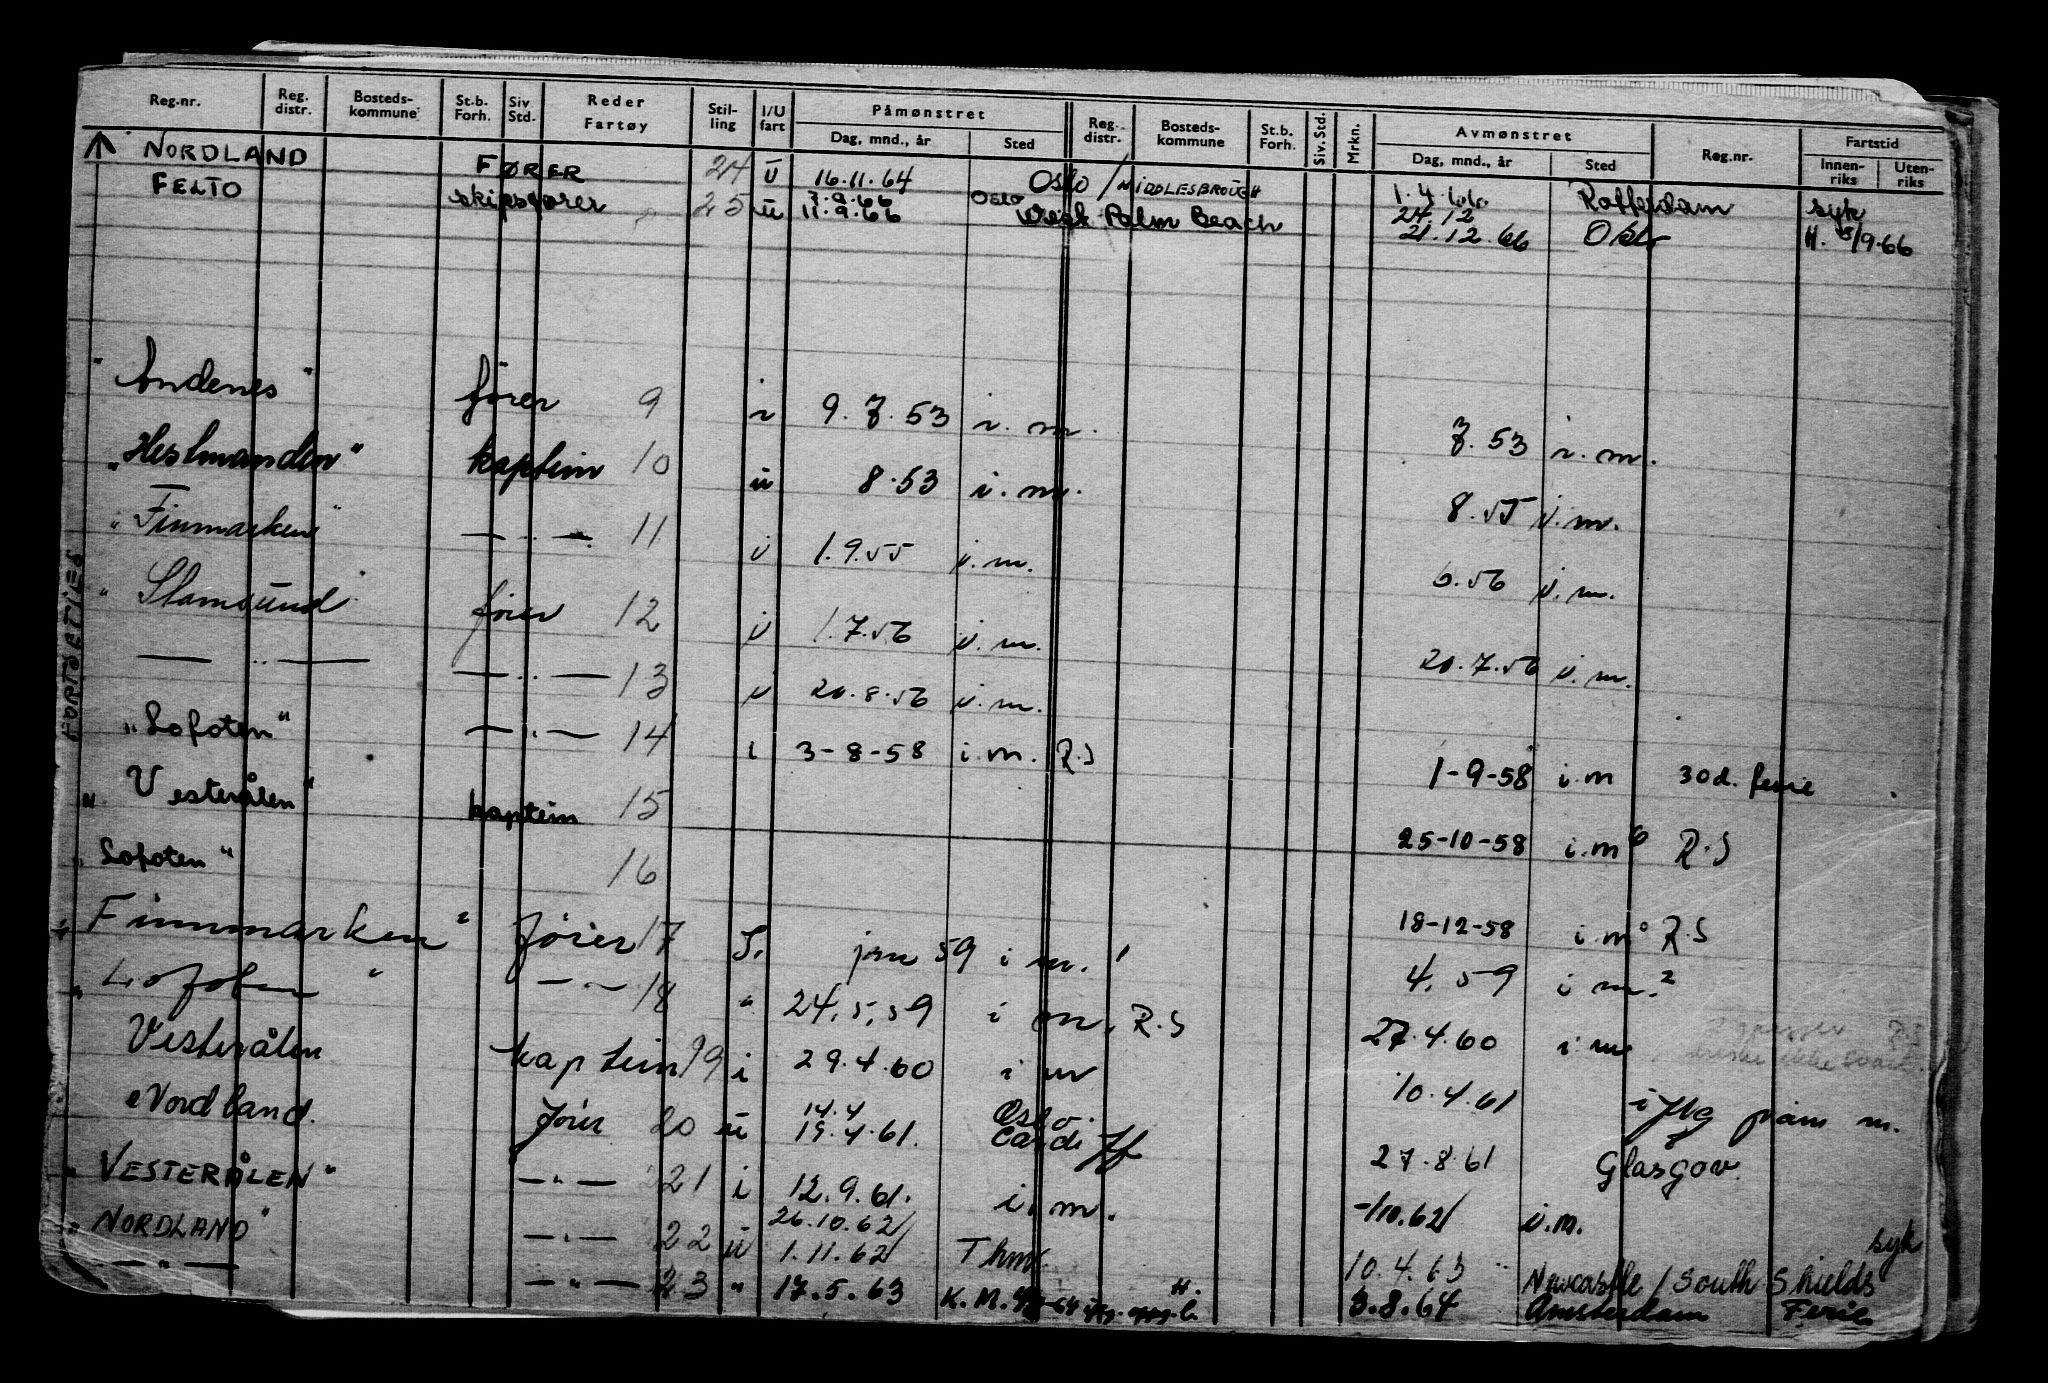 Reg.nr. Reg. distr. Bosteds- kommune St.b. Forh. Siv Std. Reder Fartøy Stil- ling I/U fart Påmønstret Dag, mnd., år Sted Reg. distr. Bosteds- kommune St.b. Forh. Siv. Std. Mrkn. Avmønstret Dag, mnd., år Sted Reg.nr. Fartstid Innen- riks Uten- riks
NORDLAND FØRER 24 ü 16.11.64 Oslo / MIDDLESBROUGH 1.4.66 Rotterdam syk
FELTO skipsfører 25 ü 7.9.66 Oslo 24.12
11.9.66 West Palm Beach 21.12.66 Oslo H. 5/9.66
"Andenes" fører 9 i 9.7.53 i.m. 7.53 i.m.
"Hestmanden" kaptein 10 ü 8.53 i.m. 8.55 i.m.
"Finmarken" — " — 11 i 1.9.55 i.m. 6.56 i.m.
"Stamsund" fører 12 i 1.7.56 i.m. 20.7.56 i.m.
— " — — " — 13 i 20.8.56 i.m.
"Lofoten" — " — 14 i 3-8-58 i.m. R.S 1-9-58 i.m 30d. ferie
"Vesterålen" kaptein 15 25-10-58 i.m R.S
"Lofoten" 16 18-12-58 i.m R.S
"Finnmarken" fører 17 I. jan 59 i m. 4.59 i m.
"Lofoten" — " — 18 " 24.5.59 i m. R.S 27.4.60 i m
Vesterålen kaptein 19 i 29.4.60 i m 10.4.61 i flg påm m.
Nordland. fører 20 ü 14.4 Oslo.
19.4.61. Cardiff 27.8.61 Glasgow.
"VESTERÅLEN" — " — 21 i 12.9.61. i. m. -/10.62 i.m.
"NORDLAND" — " — 22 ü 26.10.62
1.11.62 Thm. 10.4.63 Newcastle / South Shields syk
— " — — " — 23 " 17.5.63 K.M. H. 3.8.64 Amsterdam Ferie
FORTSETTES